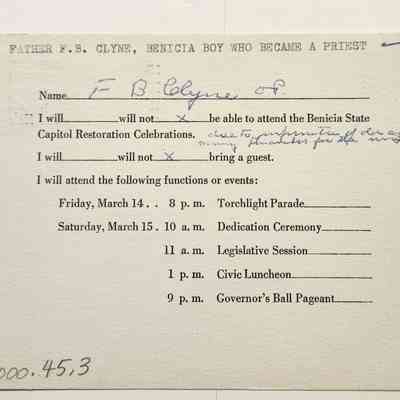 FATHER F.B. CLYNE, BENICIA BOY WHO BECAME A PRIEST
Name F B Clyne O.P.
I will will not x be able to attend the Benicia State
Capitol Restoration Celebrations. due to infirmities of old age
many thanks for the
I will will not x bring a guest.
I will attend the following functions or events:
Friday, March 14 . . 8 p. m. Torchlight Parade
Saturday, March 15 . 10 a. m. Dedication Ceremony
11 a. m. Legislative Session
1 p. m. Civic Luncheon
9 p. m. Governor's Ball Pageant
000.45.3